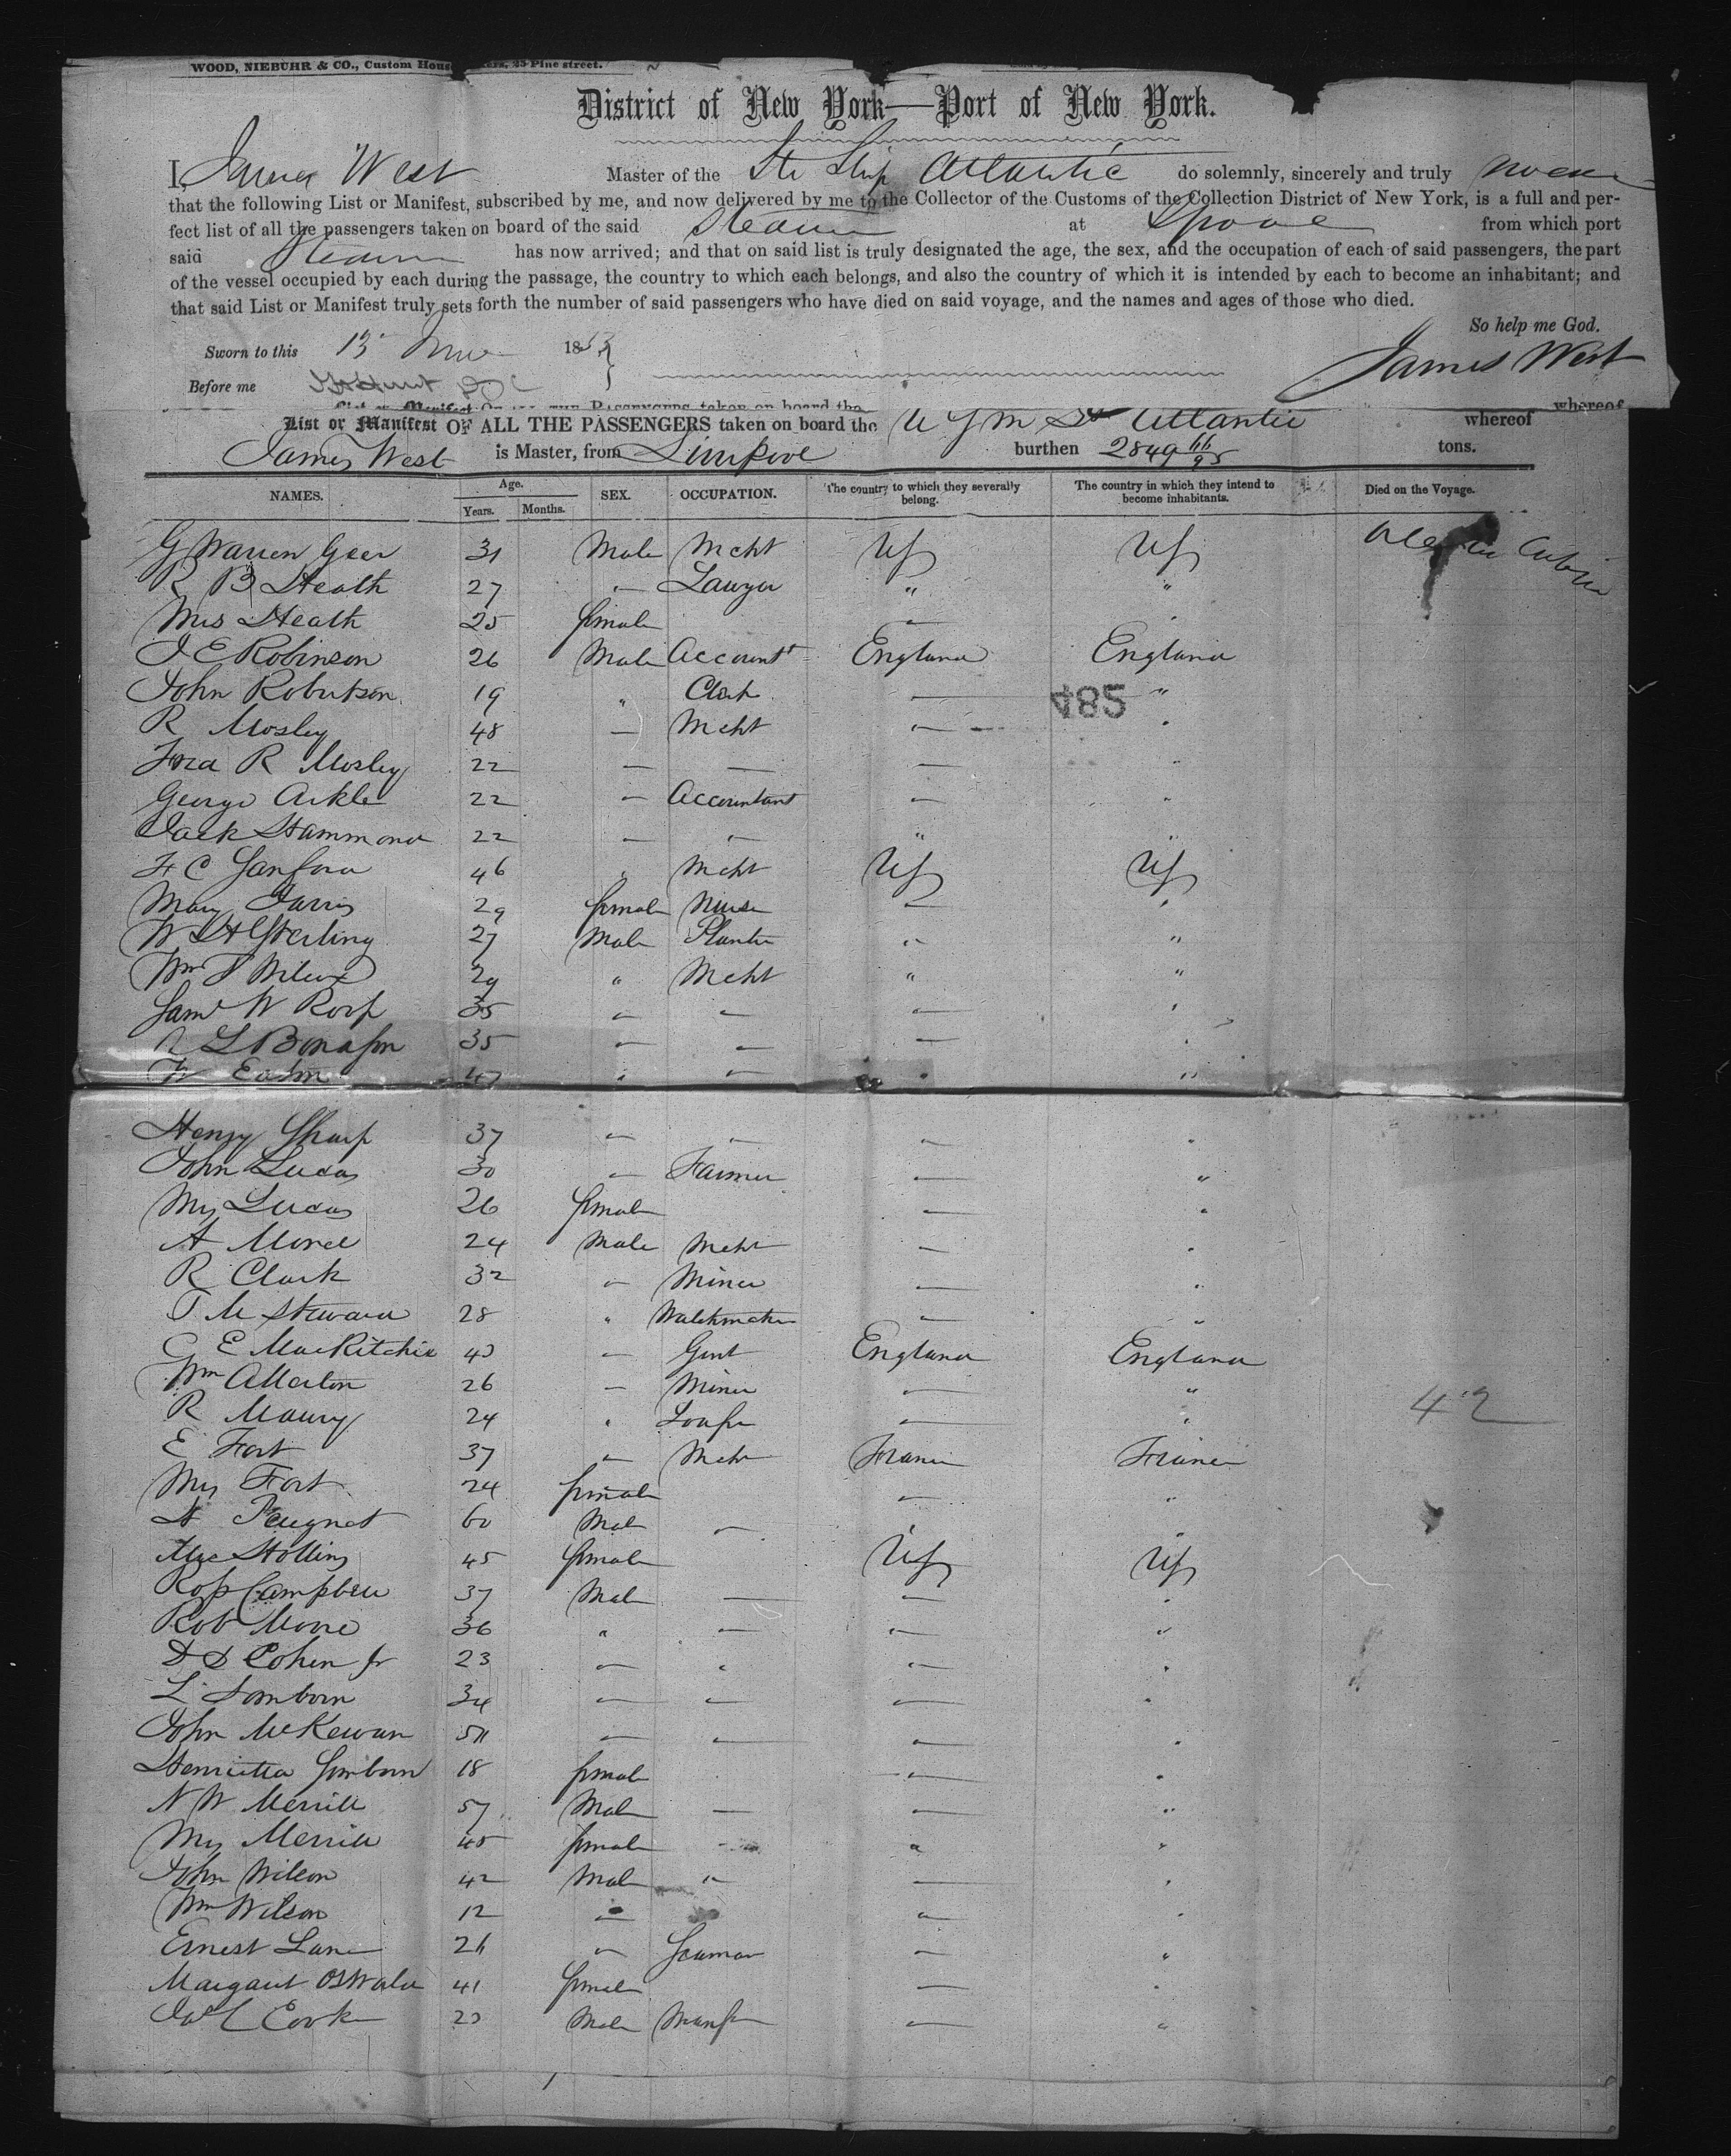 WOOD, NIEBUHR & CO., Custom House 25 Pine street.
District of New York—Port of New York.
I, James West Master of the Ste Ship Atlantic do solemnly, sincerely and truly swear
that the following List or Manifest, subscribed by me, and now delivered by me to the Collector of the Customs of the Collection District of New York, is a full and per-
fect list of all the passengers taken on board of the said Steamer at Lpoole from which port
said Steamer has now arrived; and that on said list is truly designated the age, the sex, and the occupation of each of said passengers, the part
of the vessel occupied by each during the passage, the country to which each belongs, and also the country of which it is intended by each to become an inhabitant; and
that said List or Manifest truly sets forth the number of said passengers who have died on said voyage, and the names and ages of those who died.
So help me God.
Sworn to this 13 June 185
James West
Before me
whereof
List or Manifest OF ALL THE PASSENGERS taken on board the U S M Str Atlantic whereof
James West is Master, from Liverpool burthen 2849 66/95 tons.
NAMES. Age. Years. Months. SEX. OCCUPATION. The country to which they severally belong. The country in which they intend to become inhabitants. Died on the Voyage.
G Warren Geer 31 Male Mcht US US Cabin
R B Heath 27 — Lawyer " "
Mrs Heath 25 female — "
J E Robinson 26 Male Accountt England England
John Robertson 19 " Clerk — "
485
R Mosley 48 — Mcht — "
Fred R Mosley 22 — — — "
George Arkle 22 — Accountant — "
Jack Hammond 22 — — " "
F C Sanford 46 " Mcht US US
Mary Farris 29 female Nurse — "
W H Sterling 27 Male Planter " "
Wm T Wilcox 29 " Mcht " "
Saml W Roop 35 — — — "
35 — — — "
F Eaton 47 " — " "
Henry Sharp 37 — — — "
John Lucas 30 — Farmer — "
Mrs Lucas 26 female — "
A Morel 24 Male Mcht — "
R Clark 32 — Miner — "
T M Steward 28 " Watchmaker — "
G E MacRitchie 43 — Gent England England
Wm Allerton 26 — Miner — "
42
R Maury 24 " — "
E Fort 37 — Mcht France France
Mrs Fort 24 female — "
H Peugnet 60 Male — " "
Mrs Hollins 45 female US US
Ross Campbell 37 Male — — "
Rob Moore 36 " — — "
D D Cohen Jr 23 — " — "
L Somborn 34 — — — "
John McKewan 50 — — — "
Henrietta Somborn 18 female — "
N W Merrill 57 Male — — "
Mrs Merrill 45 female — " "
John Wilson 42 Male " — "
Wm Wilson 12 — — "
Ernest Lane 26 — Seaman — "
Margaret Oswald 41 female — "
Cook 23 Male Manfr — "